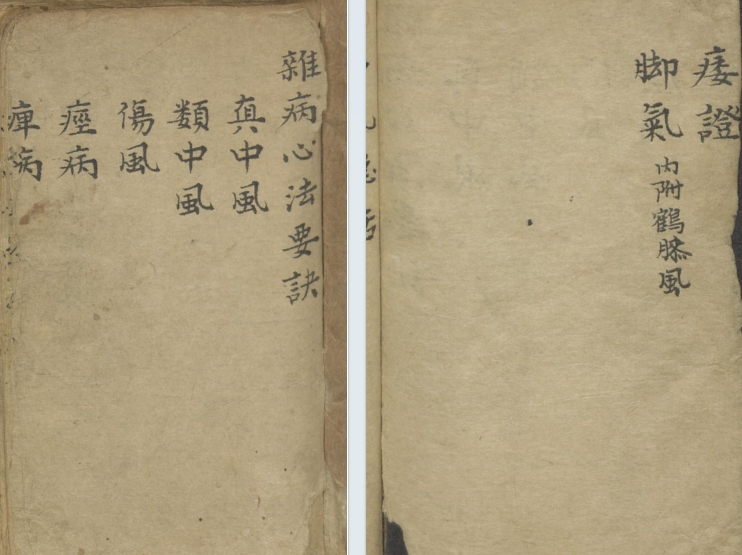 雜病心法要訣
真中風
類中風
傷風
痙病
痺病
痿證
脚氣 内附鶴膝風